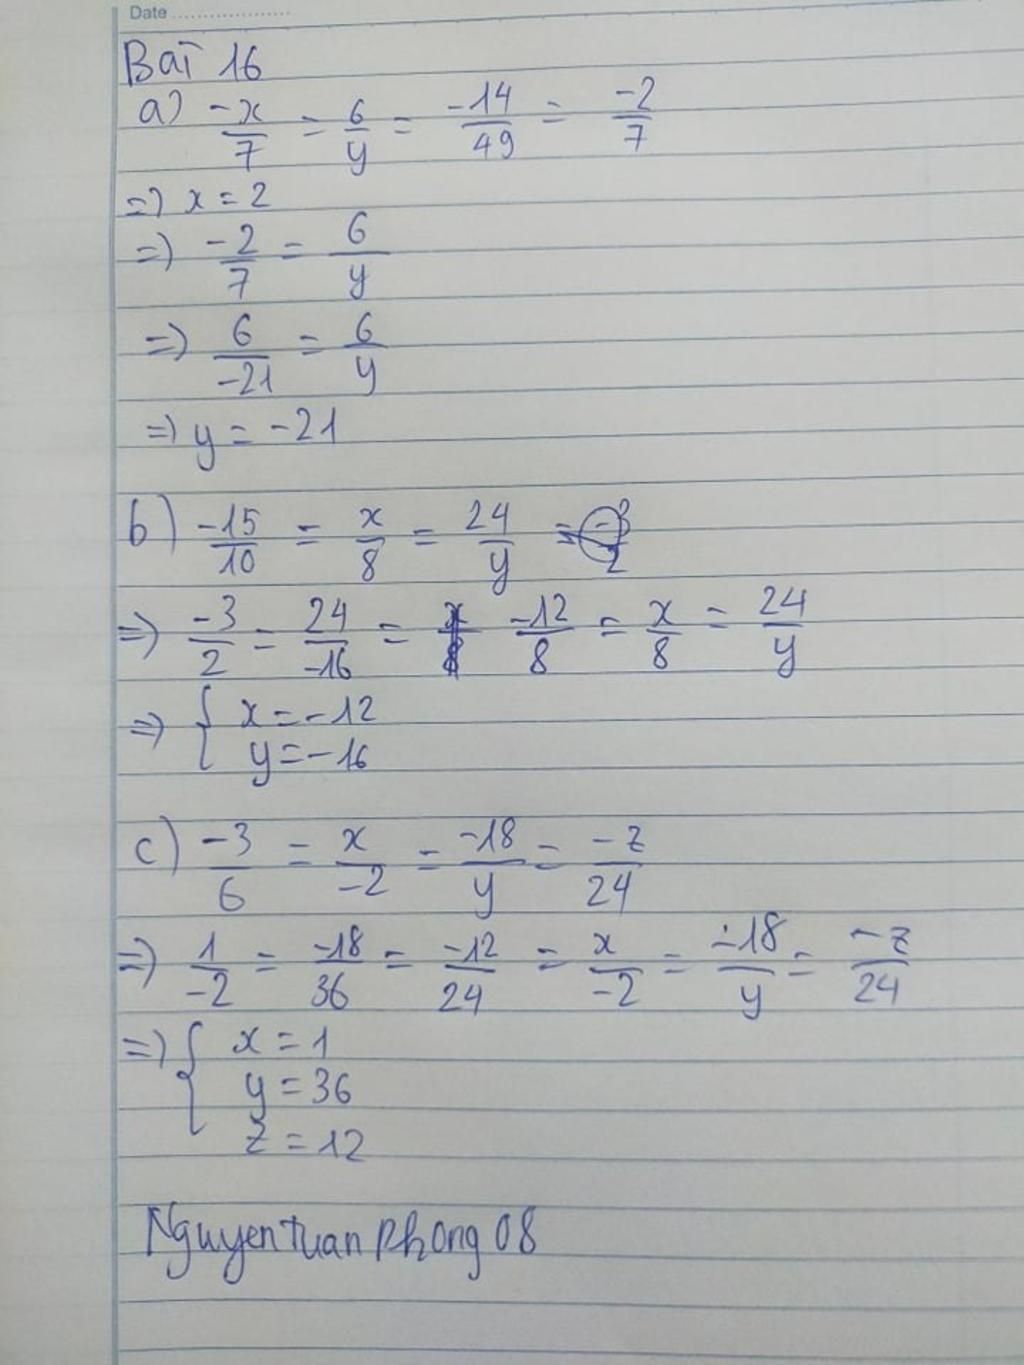 Date ....................
Bài 16
a) -x/7 = 6/y = -14/49 = -2/7
=> x = 2
=> -2/7 = 6/y
=> 6/-21 = 6/y
=> y = -21
b) -15/10 = x/8 = 24/y
=> -3/2 = 24/-16 = -12/8 = x/8 = 24/y
=> { x = -12
y = -16
c) -3/6 = x/-2 = -18/y = -z/24
=> 1/-2 = -18/36 = -12/24 = x/-2 = -18/y = -z/24
=> { x = 1
y = 36
z = 12
Nguyen tuan Phong 08